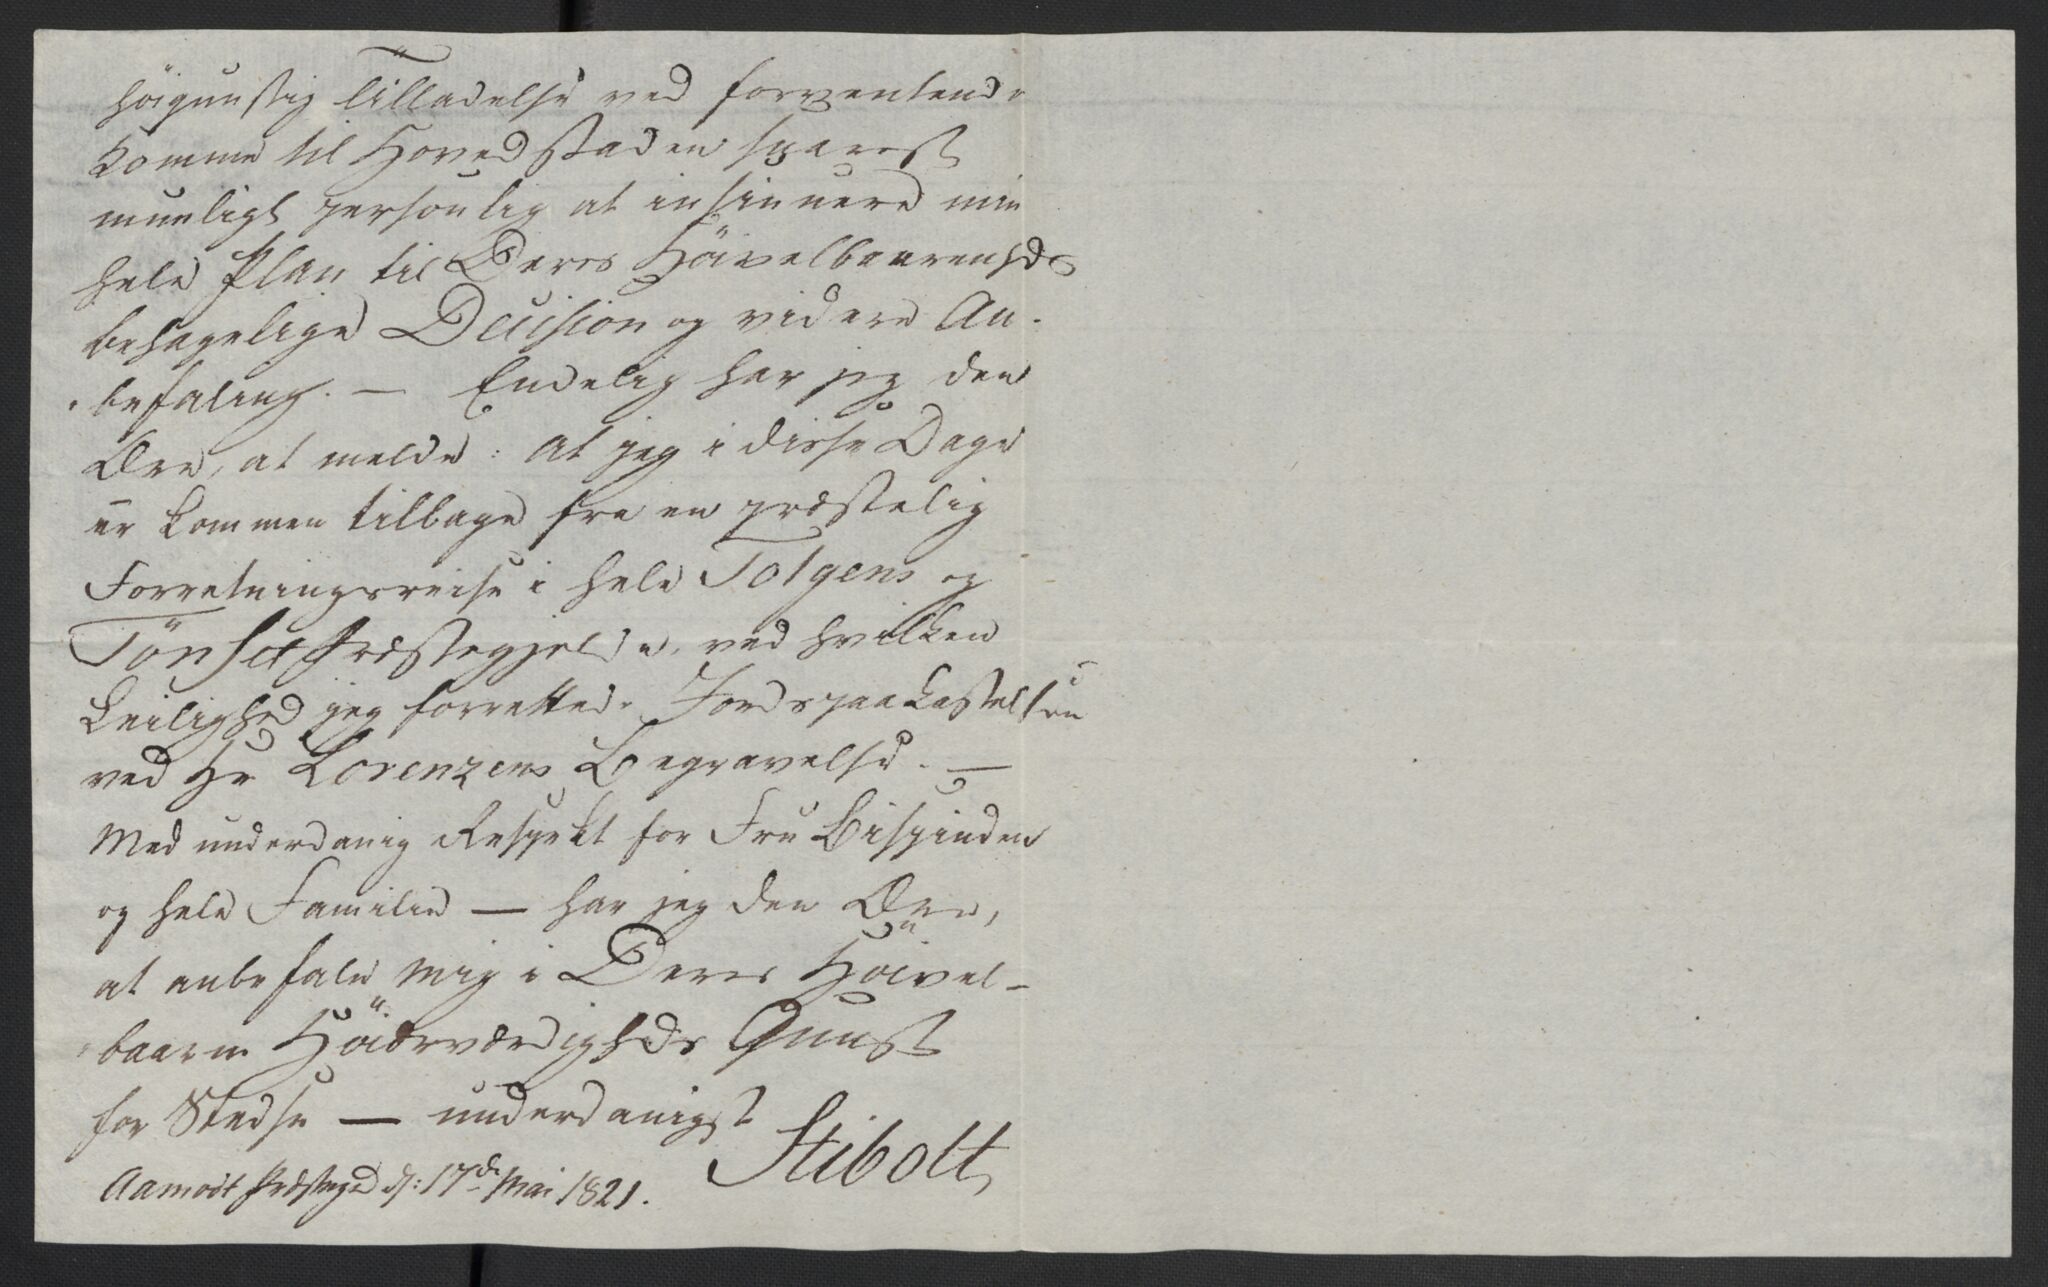 höigunstig Tilladelse ved forventende
Komme til Hovedstaden snarest
mueligt personlig at insinuere min
hele Plan til Deres Höivelbaarenhds
behagelige Decision og videre An-
befaling. — Endelig har jeg den
Ære, at melde: At jeg i disse Dage
er kommen tilbage fra en præstelig
Forretningsreise i hele Tolgens og
Tönset Præstegjelde, ved hvilken
Leilighed jeg forrettede Jordspaakastelsen
ved Hr Lorenzens Begravelse. —
Med underdanig Respekt for Fru Bispinden
og hele Familie — har jeg den Ære,
at anbefale mig i Deres Höivel-
baarne Höiærværdigheds Gunst
for Stedse — underdanigst
Stibolt
Aamodt Præstegd d: 17de Mai 1821.